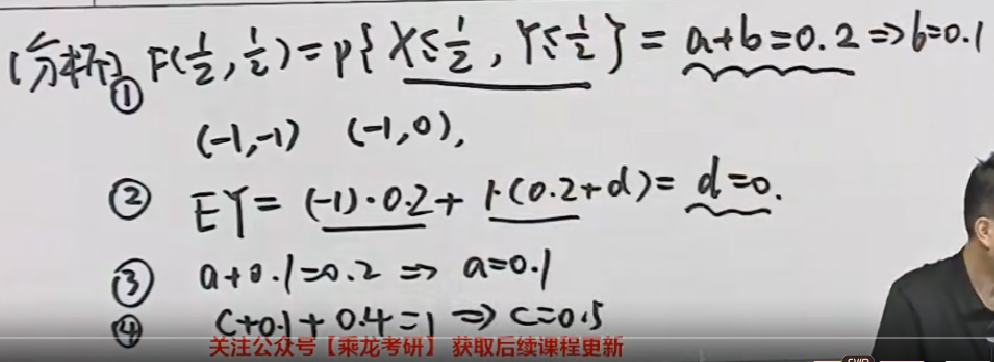 [分析] F(1/2, 1/2) = P{X≤1/2, Y≤1/2} = a+b=0.2 ⇒ b=0.1
①
(-1,-1) (-1,0),
② EY = (-1)·0.2 + 1·(0.2+d) = d=0.
③ a+0.1=0.2 ⇒ a=0.1
④ c+0.1+0.4=1 ⇒ c=0.5
关注公众号【乘龙考研】 获取后续课程更新